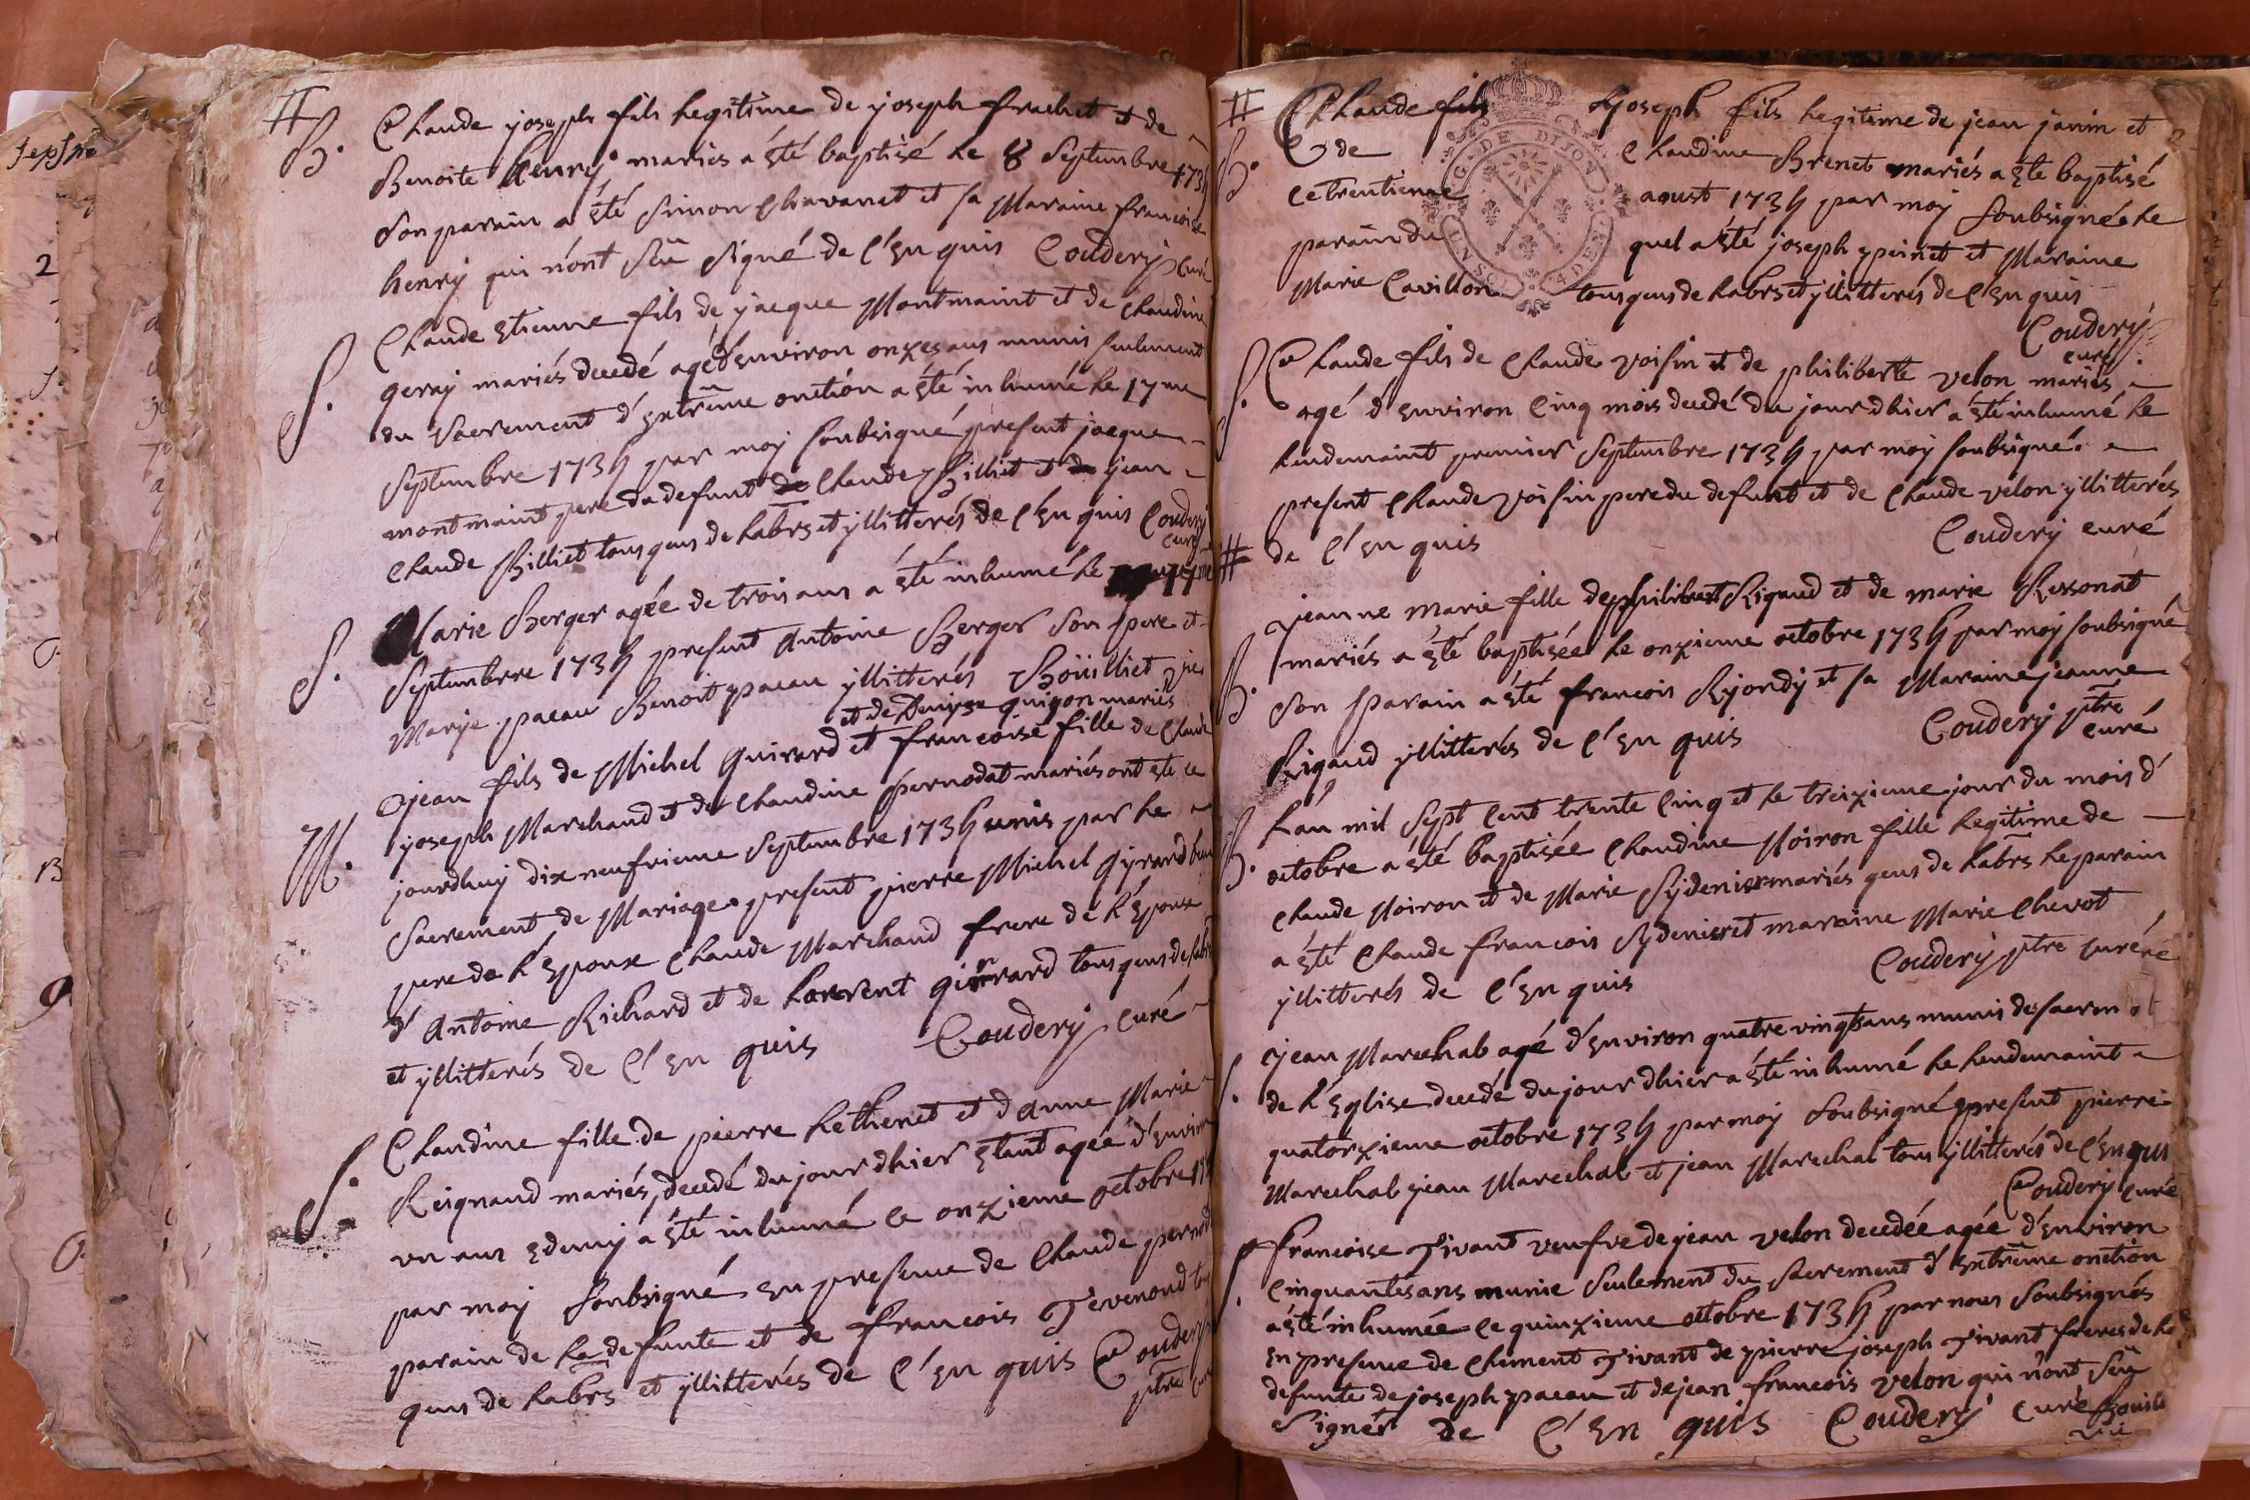 Sepṡre
2
13
B.
Claude joseph fils legitime de joseph frachet et de
Benoite henry mariés a été baptisé le 8 Septembre 1735
Son parain a été Simon Chavanet et sa Maraine francoise
henry qui n'ont Sçu Signé de C'Enquis Coudery Curé
S.
Claude Etienne fils de jacque Montmaint et de Claudine
geray mariés decedé agé d'Environ onzes ans munis seulement
du Sacrement d'Extreme onction a été inhumé le 17me
Septembre 1735 par moy soubsigné present jacque
montmaint pere du defunt de Claude Billiet et de jean
Claude Billiet tous gens de labrs et yllitterés de C'Enquis Coudery
curé
S.
Marie Berger agée de trois ans a été inhumé le
Septembre 1735 present Antoine Berger Son pere et
Marye pacau Benoit pacau yllitterés Boüilliet vic
et de Denyse guigon mariés
M.
jean fils de Michel Guirard et francoise fille de Claude
joseph Marchand et de Claudine pernodat mariés ont été ce
jourdhuy dix neufvieme Septembre 1735 unis par le
Sacrement de Mariage present pierre Michel Gyrard beau
pere de l'Epouse Claude Marchand frere de l'Epouse
d'Antoine Richard et de laurent girard tous gens de labrs
et yllitterés de C'En quis Coudery curé
S.
Claudine fille de pierre Lethenet et d'anne Marie
Reignaud mariés, decedé du jour dhier Etant agée d'Environ
vn ans Edemy a été inhumé ce onzieme octobre 17
par moy Soubsigné En presence de Claude pernod
parain de la defunte et de francois Tevenoud
gens de labrs et yllitterés de C'En quis Coudery
ptre
B.
Claude fils Joseph fils legitime de jean janin et
de Claudine Brenet mariés a été baptisé
ce trentieme aoust 1735 par moy Soubsigné le
parain du quel a été joseph perinet et Maraine
Marie Cavillon tous gens de labrs et yllitterés de C'Enquis
Coudery
curé
S.
Claude fils de Claude voisin et de philiberte velon mariés
agé d'Environ Cinq mois decedé du jour dhier a été inhumé le
lendemaint premier Septembre 1735 par moy soubsigné
present Claude voisin pere du defunt et de Claude velon yllitterés
de C'En quis Coudery curé
B.
jeanne marie fille de philibert Rigaud et de marie Ressonat
mariés a été baptisée le onzieme octobre 1735 par moy soubsigné
Son parain a été francois Ryondy et sa Maraine jeanne
Rigaud yllitterés de C'En quis Coudery ptre
curé
B.
L'an mil Sept Cent trente Cinq et le treizieme jour du mois d'
octobre a été baptisée Claudine Noiron fille legitime de
Claude Noiron et de Marie Sydenier mariés gens de labrs le parain
a été Claude francois Sydenier et maraine Marie Chevot
yllitterés de C'En quis Coudery ptre curé
S.
jean Marechal agé d'Environ quatre vingt ans munis de sacrem
de l'Eglise decedé du jour dhier a été inhumé le lendemaint
quatorzieme octobre 1735 par moy Soubsigné present pierre
Marechal jean Marechal et jean Marechal tous yllitterés de C'Enquis
Coudery curé
S.
francoise Tivant veufve de jean velon decedée agée d'Environ
Cinquantes ans munie Seulement du Sacrement d'Extreme onction
a été inhumée ce quinzieme octobre 1735 par nous Soubsignés
En presence de Clement Tivant de pierre joseph Tivant freres de la
defunte de joseph pacau et de jean francois velon qui n'ont Sçu
Signer de C'En quis Coudery curé Bouill
vic